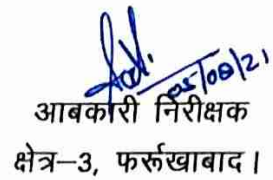 05/08/21
आबकारी निरीक्षक
क्षेत्र–3, फर्रूखाबाद।